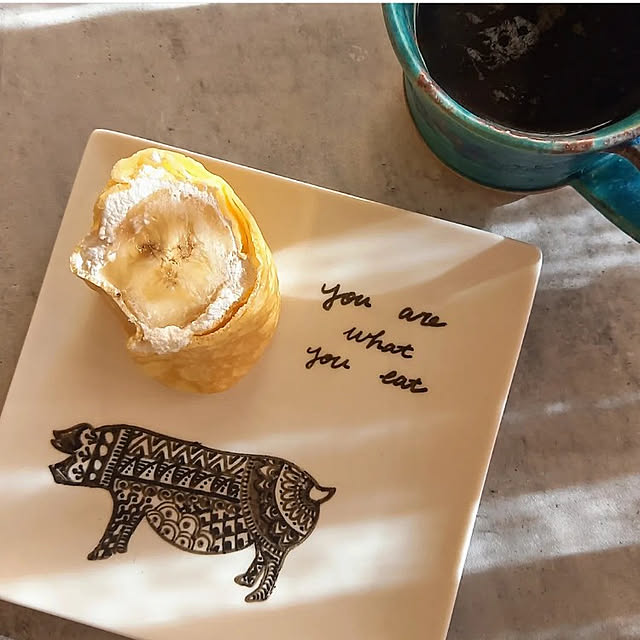 You are
what
you eat